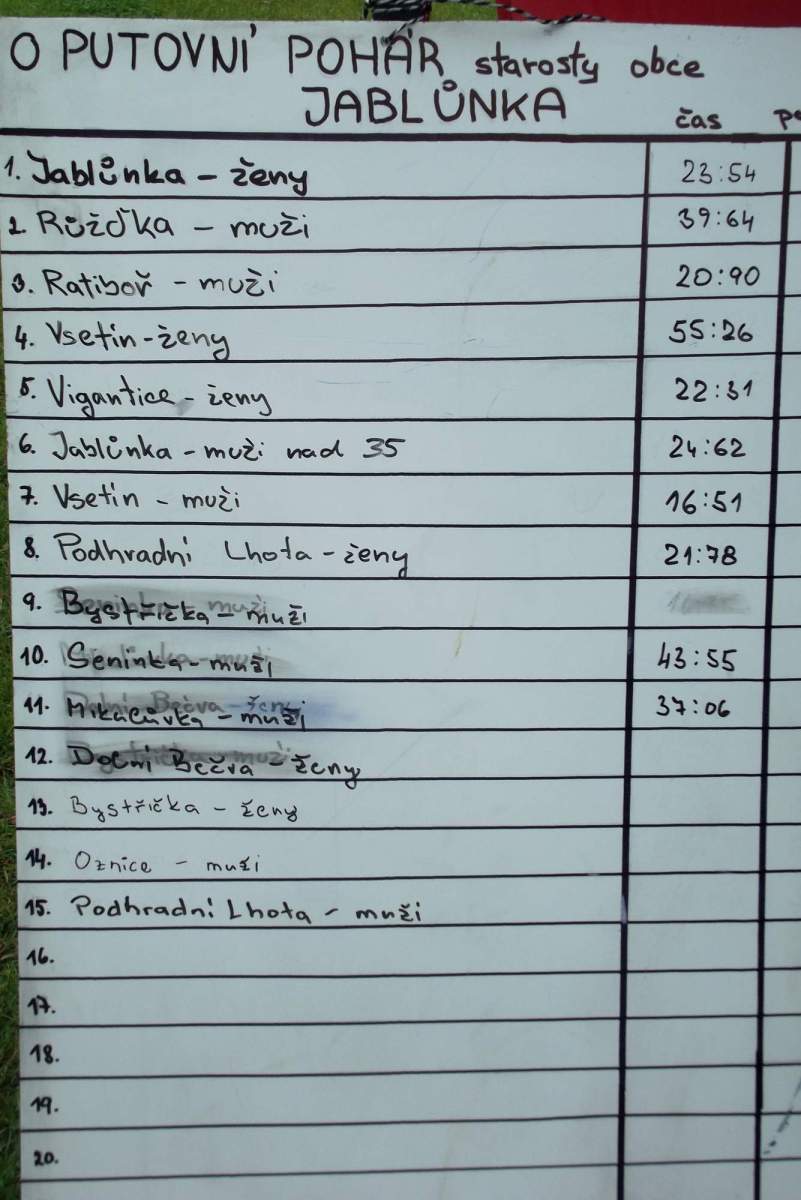 O PUTOVNÍ POHÁR starosty obce
JABLŮNKA
čas
1. Jablůnka - ženy 23:54
2. Růžďka - muži 39:64
3. Ratiboř - muži 20:90
4. Vsetín - ženy 55:26
5. Vigantice - ženy 22:31
6. Jablůnka - muži nad 35 24:62
7. Vsetín - muži 16:51
8. Podhradní Lhota - ženy 21:78
9. Bystřička - muži
10. Seninka - muži 43:55
11. Mikulůvka - muži 37:06
12. Dolní Bečva - ženy
13. Bystřička - ženy
14. Oznice - muži
15. Podhradní Lhota - muži
16.
17.
18.
19.
20.